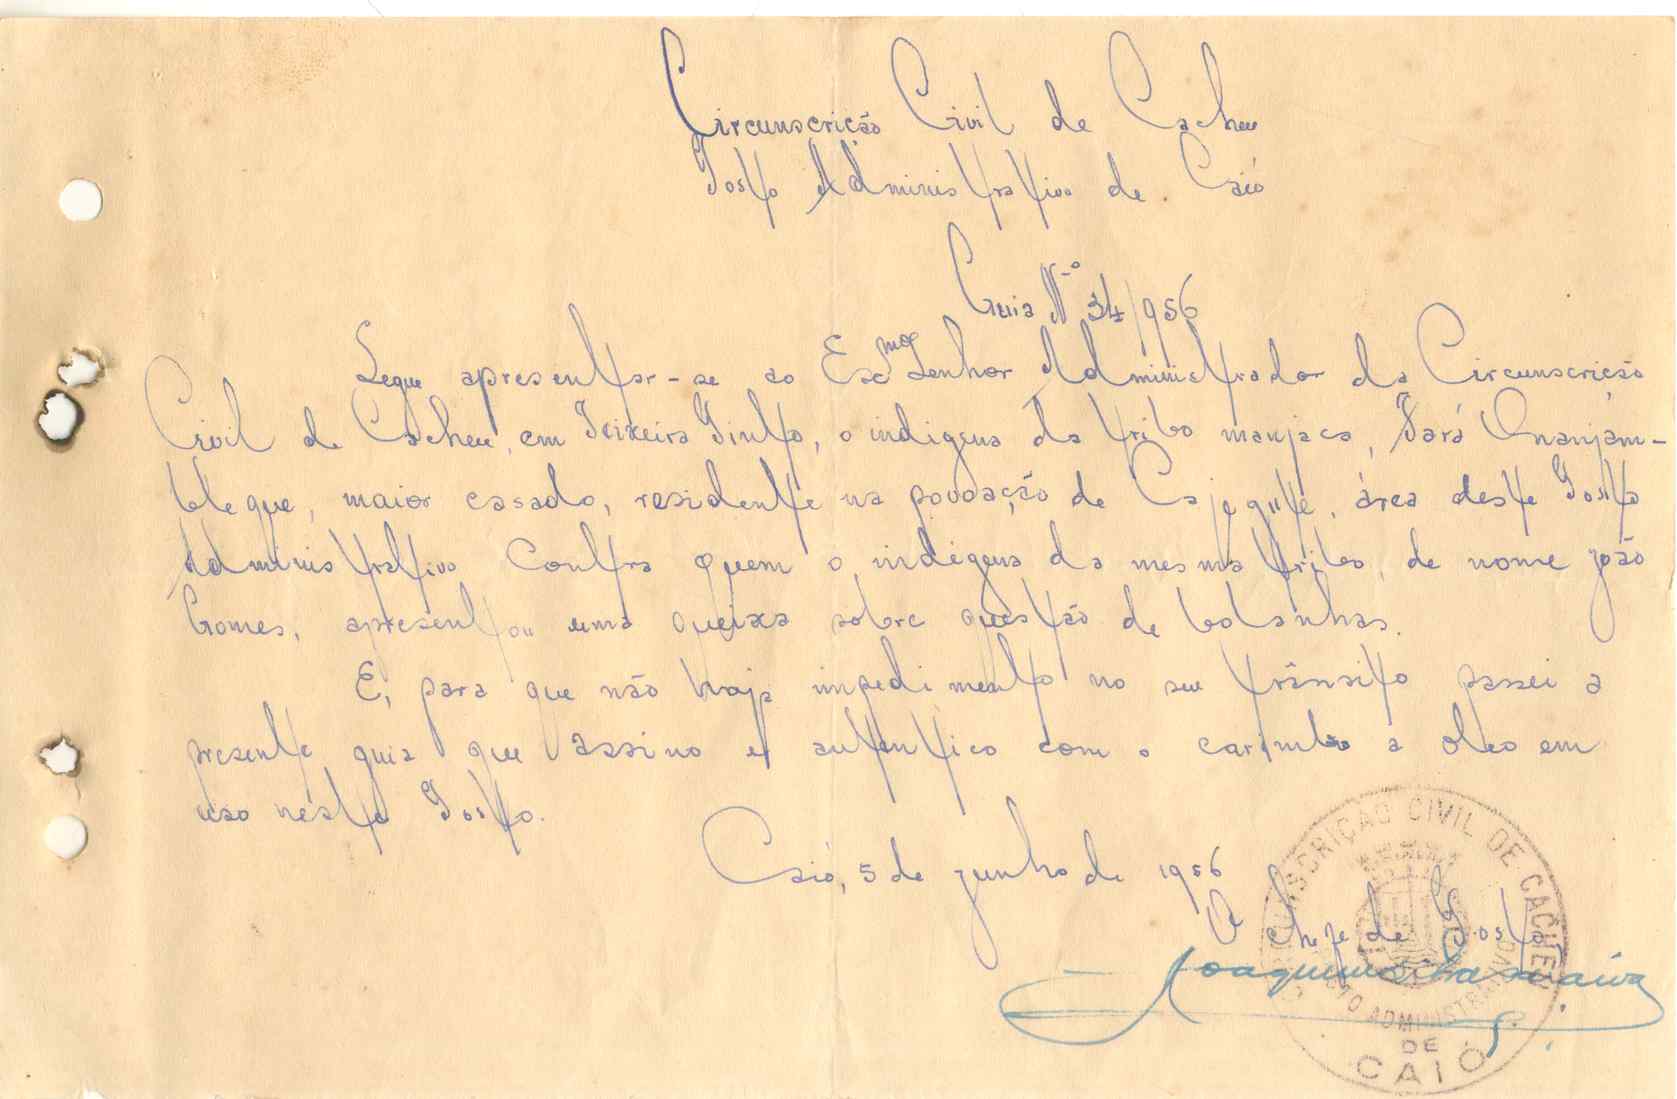 Circunscrição Civil de Cacheu
Posto Administrativo de Caió
Guia Nº 34/956
Segue apresentar-se ao Excmo Senhor Administrador da Circunscrição
Civil de Cacheu, em Teixeira Pinto, o indigena da tribo manjaca, Pará Onanjam-
bleque, maior casado, residente na povoação de Cajegute, área deste Posto
Administrativo contra quem o indígena da mesma tribo, de nome João
Gomes, apresentou uma queixa sobre questão de bolanhas.
E, para que não haja impedimento no seu trânsito passei a
presente guia que assino e autentico com o carimbo a óleo em
uso neste Posto.
Caió, 5 de junho de 1956
O Chefe de Posto
Joaquim
CIRCUNSCRIÇÃO CIVIL DE CACHEU
POSTO ADMINISTRATIVO
DE
CAIÓ